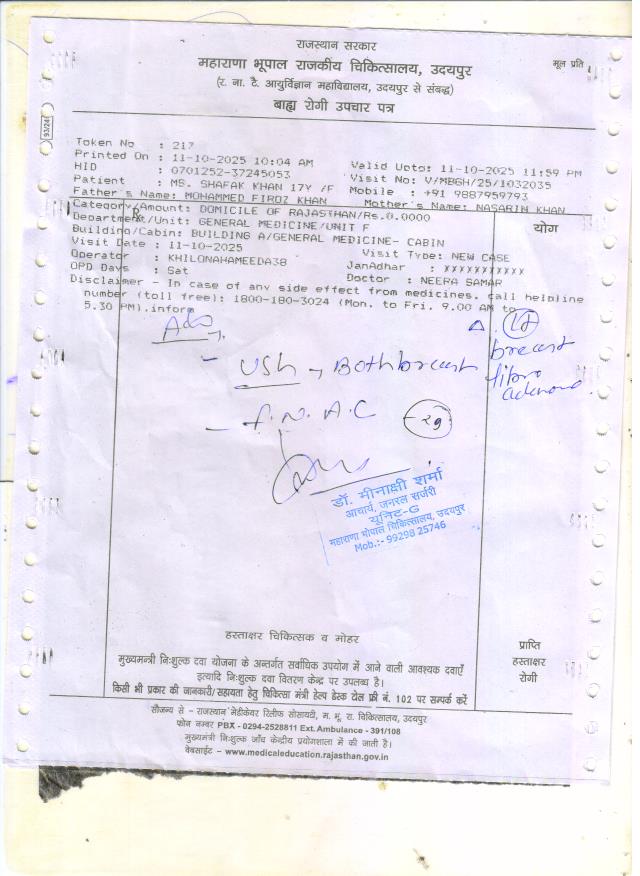 राजस्थान सरकार
महाराणा भूपाल राजकीय चिकित्सालय, उदयपुर
मूल प्रति
(र. ना. टै. आयुर्विज्ञान महाविद्यालय, उदयपुर से संबद्ध)
बाह्य रोगी उपचार पत्र
93/24
Token No : 217
Printed On : 11-10-2025 10:04 AM Valid Upto: 11-10-2025 11:59 PM
HID : 0701252-37245053 Visit No: V/MBGH/25/1032035
Patient : MS. SHAFAK KHAN 17Y /F Mobile : +91 9887959793
Father's Name: MOHAMMED FIROZ KHAN Mother's Name: NASARIN KHAN
Category/Amount: DOMICILE OF RAJASTHAN/Rs.0.0000
योग
R
Department/Unit: GENERAL MEDICINE/UNIT F
Building/Cabin: BUILDING A/GENERAL MEDICINE- CABIN
Visit Date : 11-10-2025 Visit Type: NEW CASE
Operator : KHILONAHAMEEDA38 JanAdhar : XXXXXXXXXXX
OPD Days : Sat Doctor : NEERA SAMAR
Disclaimer - In case of any side effect from medicines, call helpline
number (toll free): 1800-180-3024 (Mon. to Fri. 9.00 AM to
5.30 PM).inform
Adv
Δ. Lt
breast
fibro
- USG → Both breast
- F.N.A.C
डॉ. मीनाक्षी शर्मा
आचार्य, जनरल सर्जरी
यूनिट-G
महाराणा भोपाल चिकित्सालय, उदयपुर
Mob.:- 99298 25746
हस्ताक्षर चिकित्सक व मोहर
प्राप्ति
हस्ताक्षर
रोगी
मुख्यमन्त्री निःशुल्क दवा योजना के अन्तर्गत सर्वाधिक उपयोग में आने वाली आवश्यक दवाएँ
इत्यादि निःशुल्क दवा वितरण केन्द्र पर उपलब्ध है।
किसी भी प्रकार की जानकारी/सहायता हेतु चिकित्सा मंत्री हेल्प डेस्क टोल फ्री नं. 102 पर सम्पर्क करें
सौजन्य से - राजस्थान मेडीकेयर रिलीफ सोसायटी, म. भू. रा. चिकित्सालय, उदयपुर
फोन नम्बर PBX - 0294-2528811 Ext. Ambulance - 391/108
मुख्यमंत्री निःशुल्क जाँच केन्द्रीय प्रयोगशाला में की जाती है।
वेबसाईट - www.medicaleducation.rajasthan.gov.in